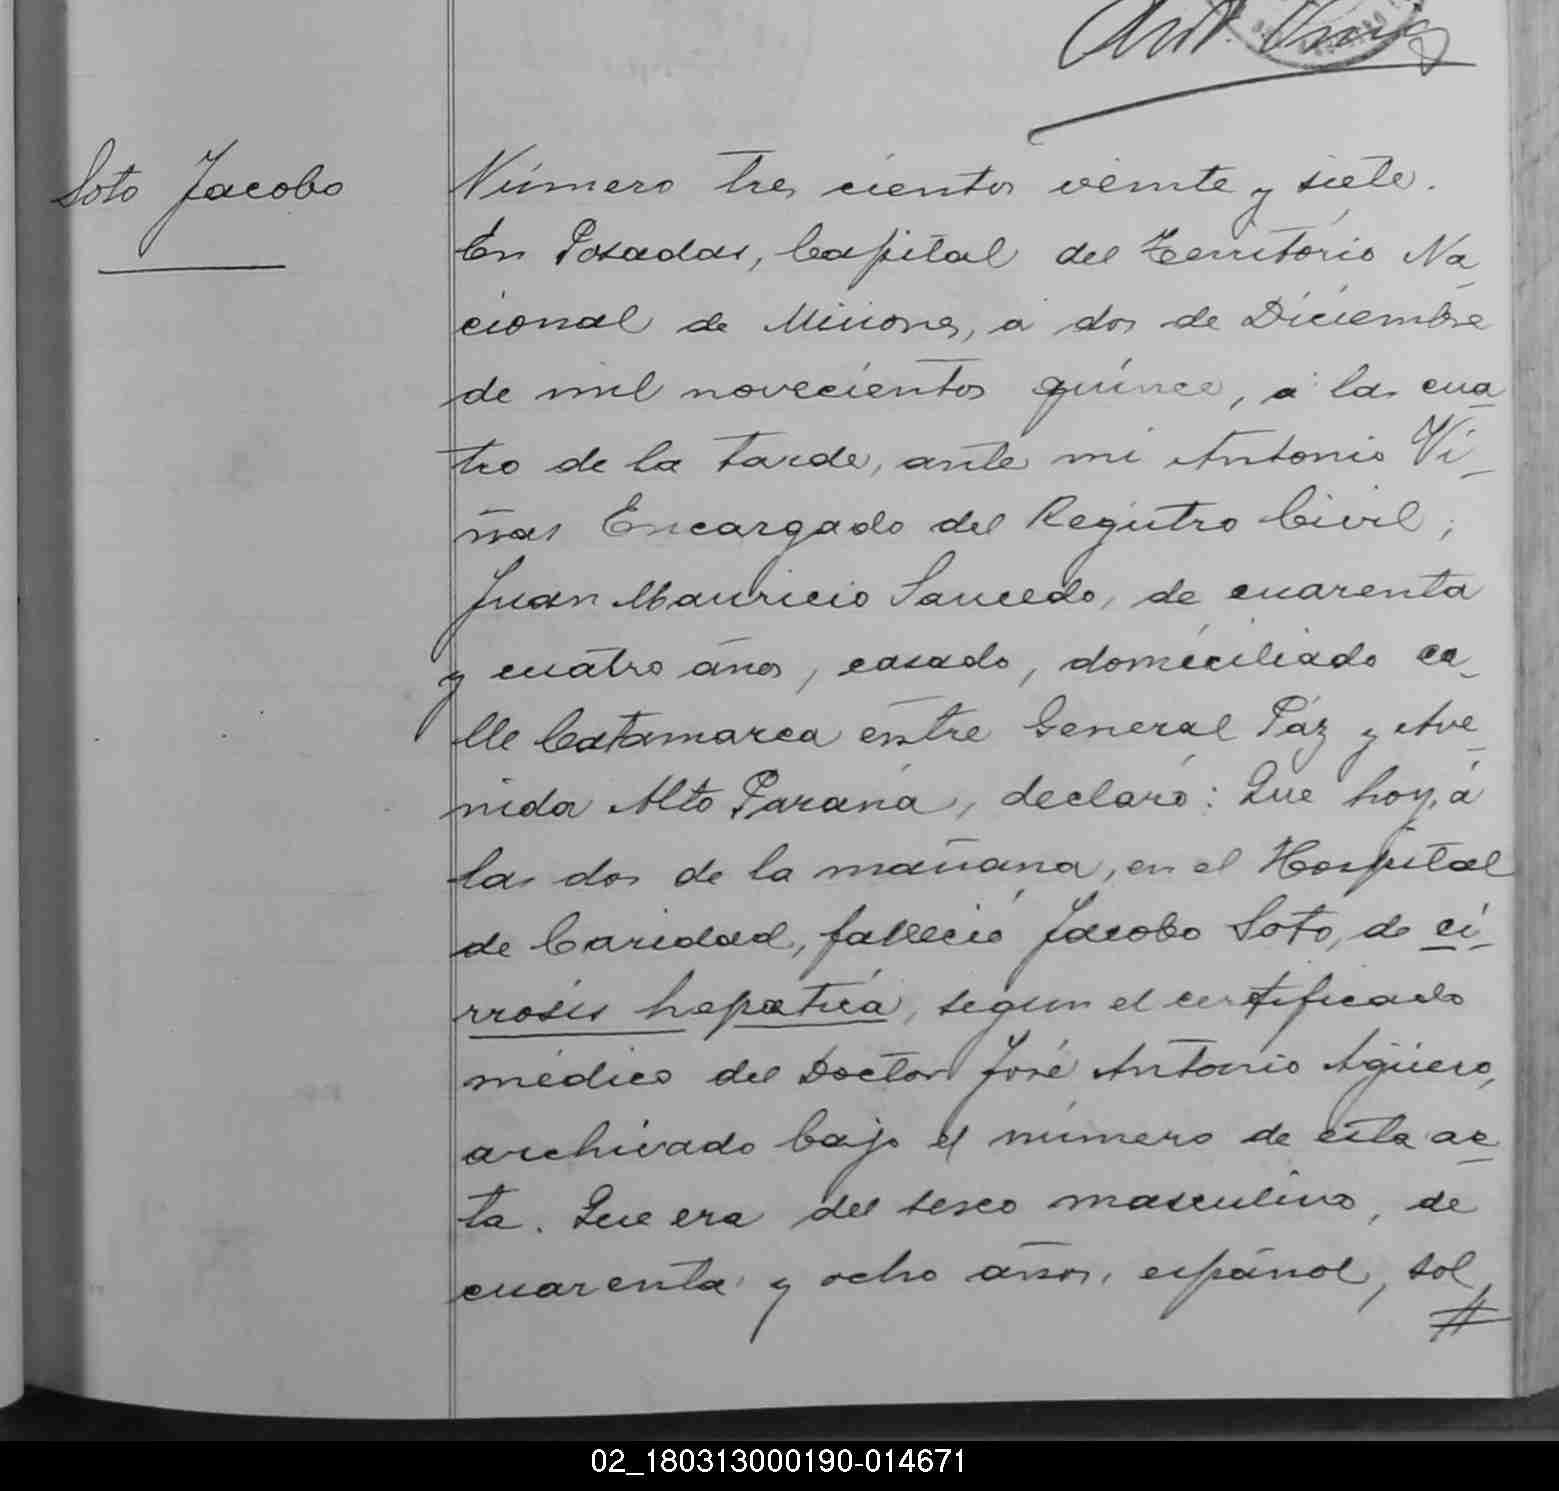 Ant. Viñas
Soto Jacobo
Número tres cientos veinte y siete.
En Posadas, Capital del Territorio Na
cional de Misiones, a dos de Diciembre
de mil novecientos quince, a las cua
tro de la tarde, ante mi Antonio Vi
ñas Encargado del Registro Civil,
Juan Mauricio Saucedo, de cuarenta
y cuatro años, casado, domiciliado ca
lle Catamarca entre General Páz y Ave
nida Alto Paraná, declaró: Que hoy, á
las dos de la mañana, en el Hospital
de Caridad, falleció Jacobo Soto, de ci
rrosis hepática, segun el certificado
médico del Doctor José Antonio Agüero,
archivado bajo el número de esta ac
ta. Que era del sexo masculino, de
cuarenta y ocho años, español, sol
02_180313000190-014671